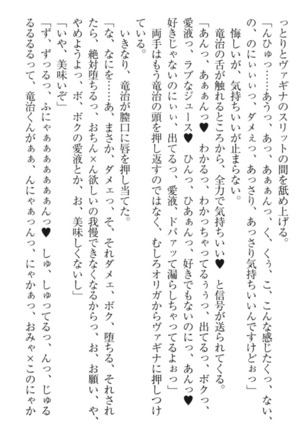 っとりとヴァギナのスリットの間を舐め上げる。
「んひゅっ……あうっ、あっ、あぁぁんっ♥　くっ、こ、こんな感じたくっ、ない、
の、のにぃぃっっ、ダメぇっ、あっさり、あっさり気持ちいいんですけどぉっ」
悔しいが、気持ちいいが止まらない。
竜治の舌が触れるところから、全力で気持ちいい♥　と信号が送られてくる。
「あんっ、あぁぁんっ♥　わかるっ、わかっちゃってるぅぅっ、出てるっ、ボクっ、
愛液っ、ラブなジュース♥　ひんっ、ひあぁんっ、好きでもないのにっ、あんっ♥
好きじゃないのにぃぃ、出てるっ、愛液、ドバァッて漏らしちゃってるよぉっ」
両手はもう竜治の頭を押し返すのではなく、むしろオリガからヴァギナに押しつけ
ている。
いきなり、竜治が膣口に唇を押し当てた。
「な、なにを……あ、まさか、ダメェっ、そ、それダメェ、ボク、堕ちる、それされ
たら、絶対堕ちるっ、おちん×ん欲しいの我慢できなくなるからっ、お、お願い、や、
やめようよっ、ボ、ボクの愛液とか、お、美味しくないし」
「いや、美味いぞ」
「ず、ずっるっ、ふにゃぁぁぁぁぁぁんっ♥　しゅ、しゅってるっ、んっ、じゅる
るるるるって、竜治くんがぁぁ、んにゃぁんっ、にゃかぁっ、おみゃ×このにゃか